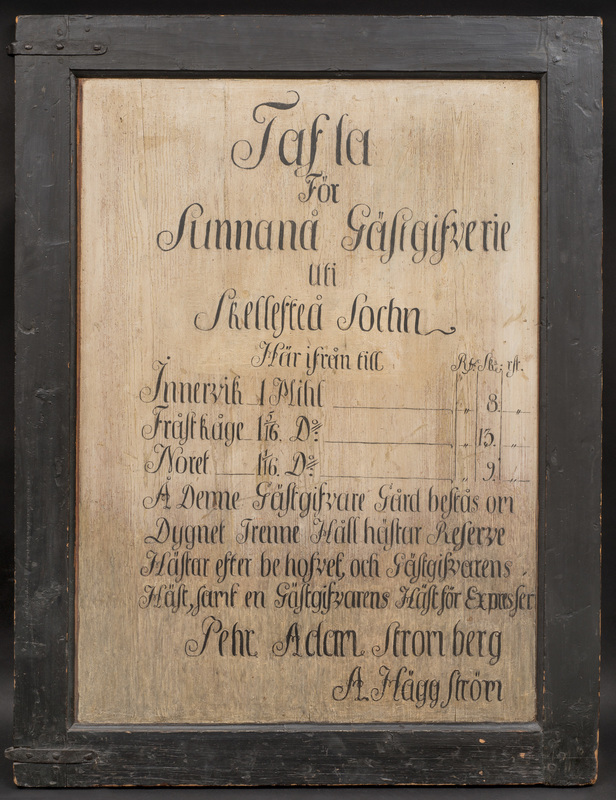 Tafla
För
Sunnanå Gästgifverie
Uti
Skellefteå Sochn
Här ifrån till Rd. Sk: rst.
Innervik 1 Mihl " 8. "
Fråstkåge 1 5/16. Do " 13. "
Noret 1 1/16. Do " 9. "
Å Denne Gästgifvare Gård bestås om
Dygnet Trenne Håll hästar Reserve
Hästar efter behofvet, och Gästgifvarens
Häst, samt en Gästgifvarens Häst för Expresser
Pehr Adam Strömberg
A. Häggström